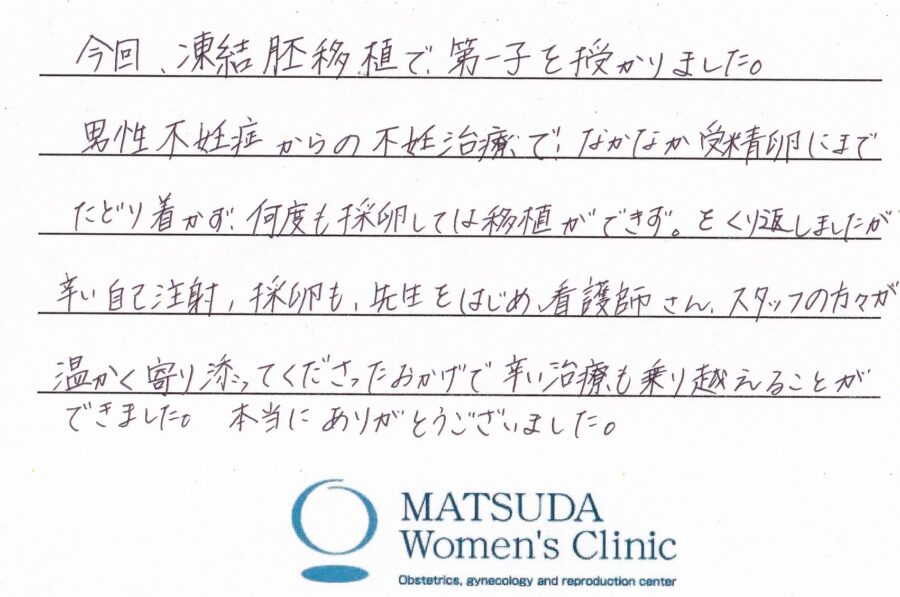 今回、凍結胚移植で、第一子を授かりました。
男性不妊症からの不妊治療で、なかなか受精卵にまで
たどり着かず、何度も採卵しては移植ができず。をくり返しましたが
辛い自己注射、採卵も、先生をはじめ、看護師さん、スタッフの方々が
温かく寄り添ってくださったおかげで辛い治療も乗り越えることが
できました。 本当にありがとうございました。
MATSUDA
Women's Clinic
Obstetrics, gynecology and reproduction center